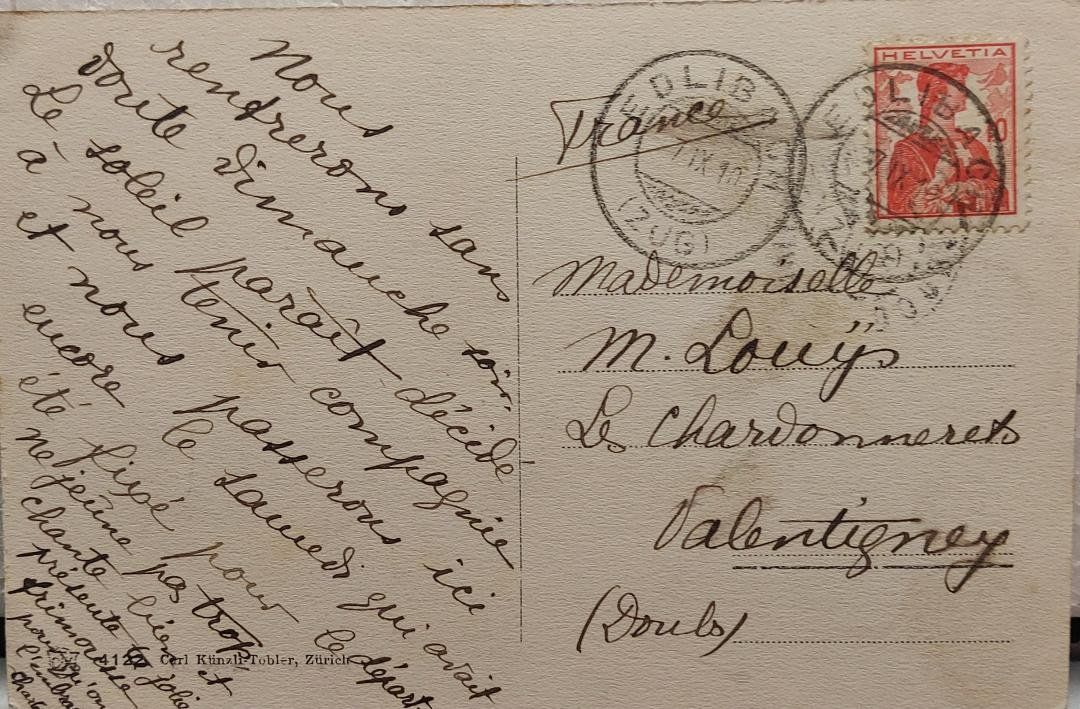 Nous
rentrerons sans
doute dimanche soir.
Le soleil paraît décidé
à nous tenir compagnie
et nous passerons ici
encore le samedi qui avait
été fixé pour le départ.
ne jeûne pas trop,
chante bien et
présente ta jolie
frimousse
pour qu'on
l'embrasse
France
EDLIBACH
(ZUG)
IX.10
HELVETIA
10
EDLIBACH
Mademoiselle
M. Louÿs
Les Chardonnerets
Valentigney
(Doubs)
4122 Carl Künzli-Tobler, Zürich